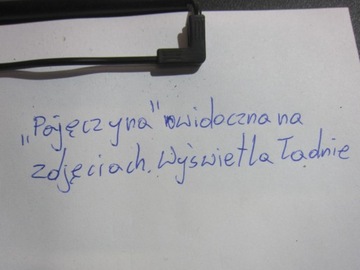 „Pajęczyna" widoczna na
zdjęciach. Wyświetla ładnie